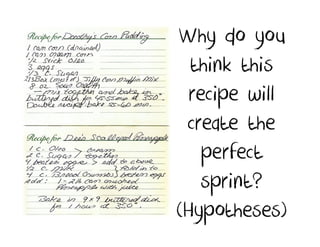 Recipe for Dorothy's Corn Pudding
1 can corn (drained)
1 can cream corn
1/2 stick oleo
3 eggs
1/3 c. Sugar
Jiffy Corn Muffin Mix
8 oz. Sour Cream
mix together and bake in
buttered dish for 45-55 min at 350°.
Double recipe bake 55-60 min.
Recipe for Dee's Scalloped Pineapple
1 c. Oleo > cream
2 c. Sugar together
beaten eggs > add to above
Fold in to
4 c. (Bread Crumbs) beaten eggs
Add: 1- can crushed
Pineapple with juice
Bake in 9x9 buttered dish
for 1 hour at 350°.
Why do you
think this
recipe will
create the
perfect
sprint?
(Hypotheses)